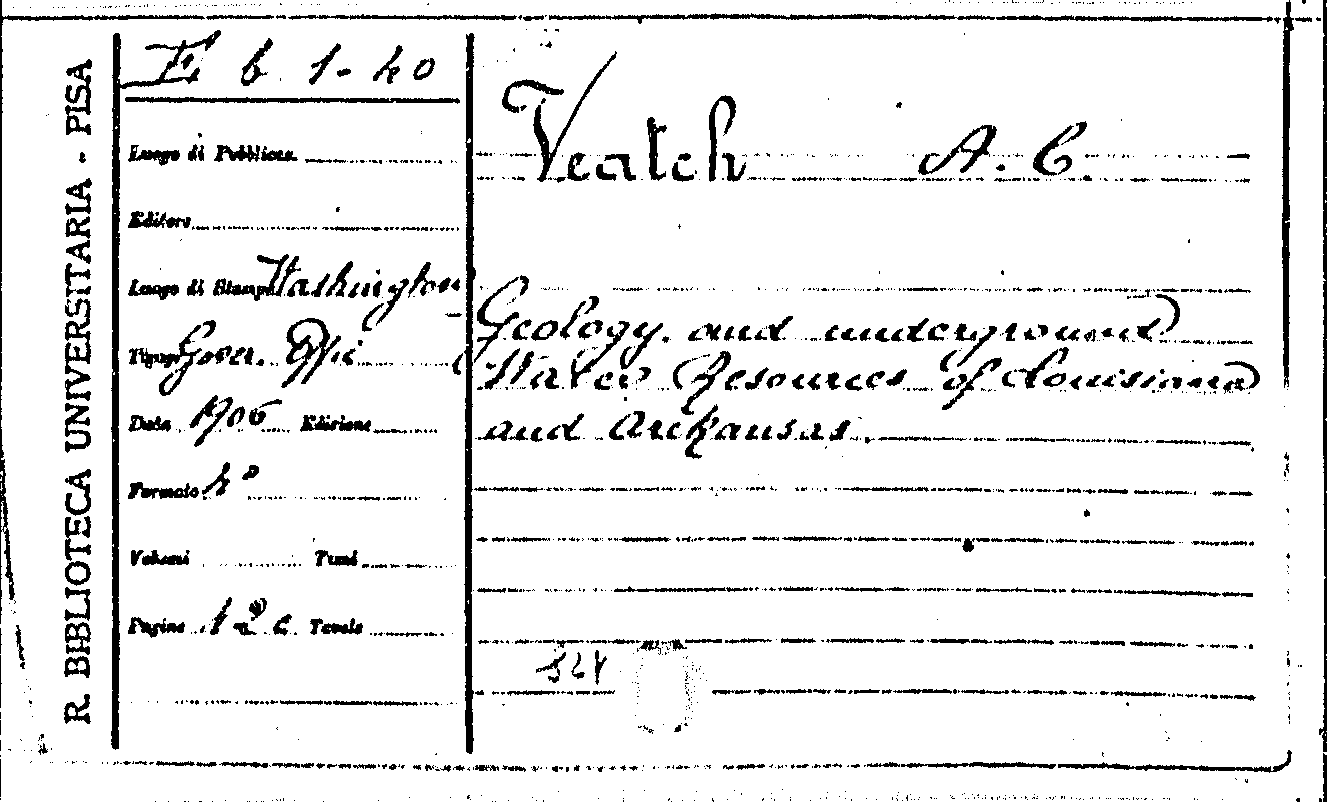 R. BIBLIOTECA UNIVERSITARIA - PISA
E b 1-40
Luogo di Pubblicaz.
Editore
Luogo di Stampa Washington
Tipogr. Gover. Offi
Data 1906 Edizione
Formato 4°
Volumi Tomi
Pagine Tavole
Veatch A. C.
Geology. and underground
Water Resources of Louisiana
and Arkansas.